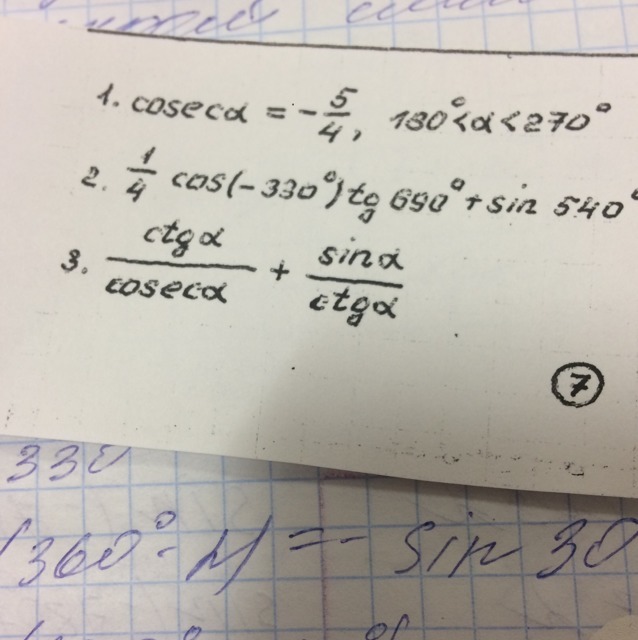 1. cosecα = -5/4, 180°<α<270°
2. 1/4 cos(-330°) tg 690° + sin 540°
3. ctgα/cosecα + sinα/ctgα
7
330
360° - sin 30